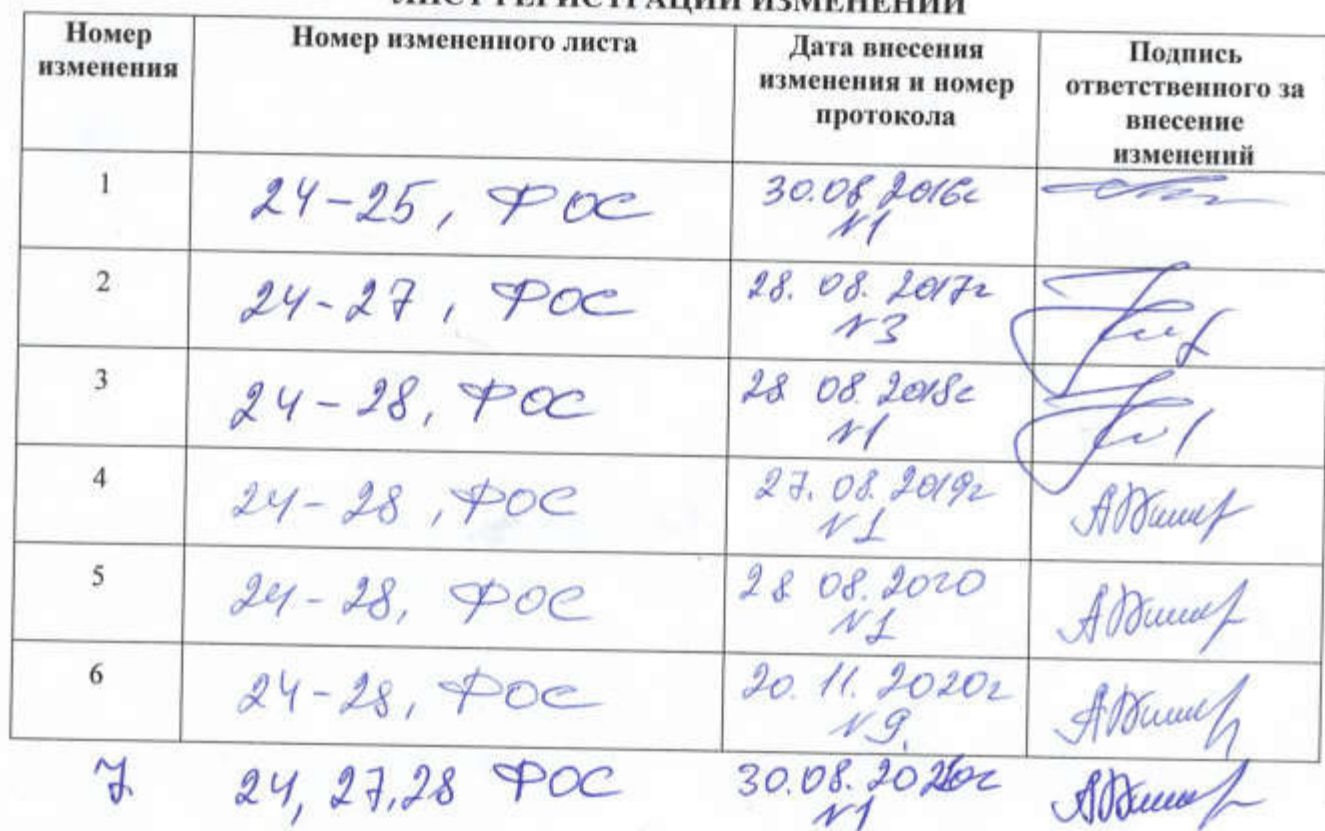 ЛИСТ РЕГИСТРАЦИИ ИЗМЕНЕНИЙ
Номер изменения
Номер измененного листа
Дата внесения изменения и номер протокола
Подпись ответственного за внесение изменений
1
24-25, ФОС
30.08.2016г
№1
2
24-27, ФОС
28. 08. 2017г
№3
3
24-28, ФОС
28 08. 2018г
№1
4
24-28, ФОС
27. 08. 2019г
№1
5
24-28, ФОС
28 08. 2020
№1
6
24-28, ФОС
20. 11. 2020г
№9.
7.
24, 27,28 ФОС
30.08.
№1